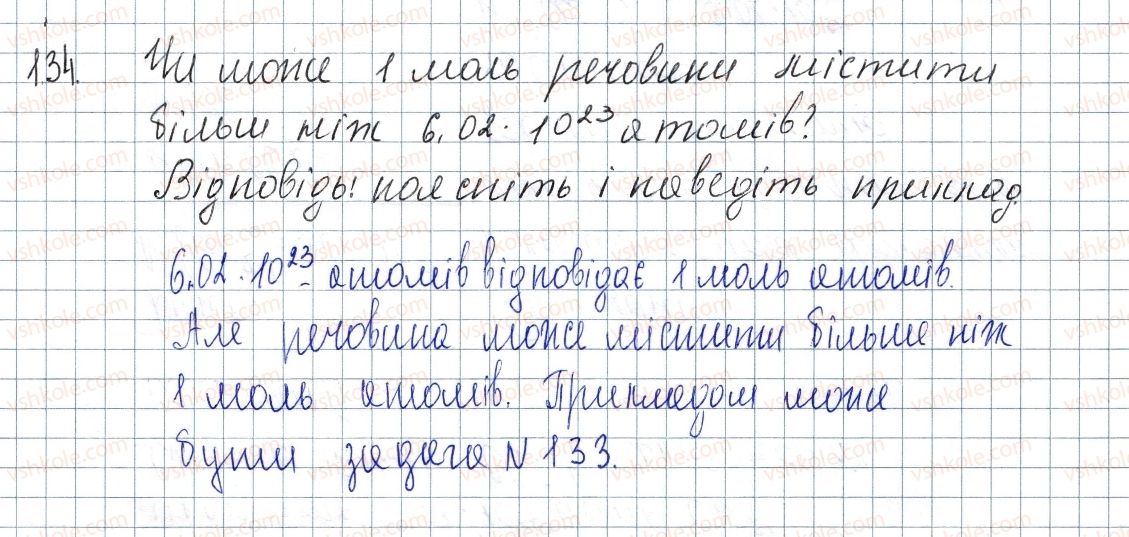 134. Чи може 1 моль речовини містити
більш ніж 6,02·10²³ атомів?
Відповідь: поясніть і наведіть приклад.
6,02·10²³ - атомів відповідає 1 моль атомів.
Але речовина може містити більше ніж
1 моль атомів. Прикладом може
бути задача №133.
vshkole.com